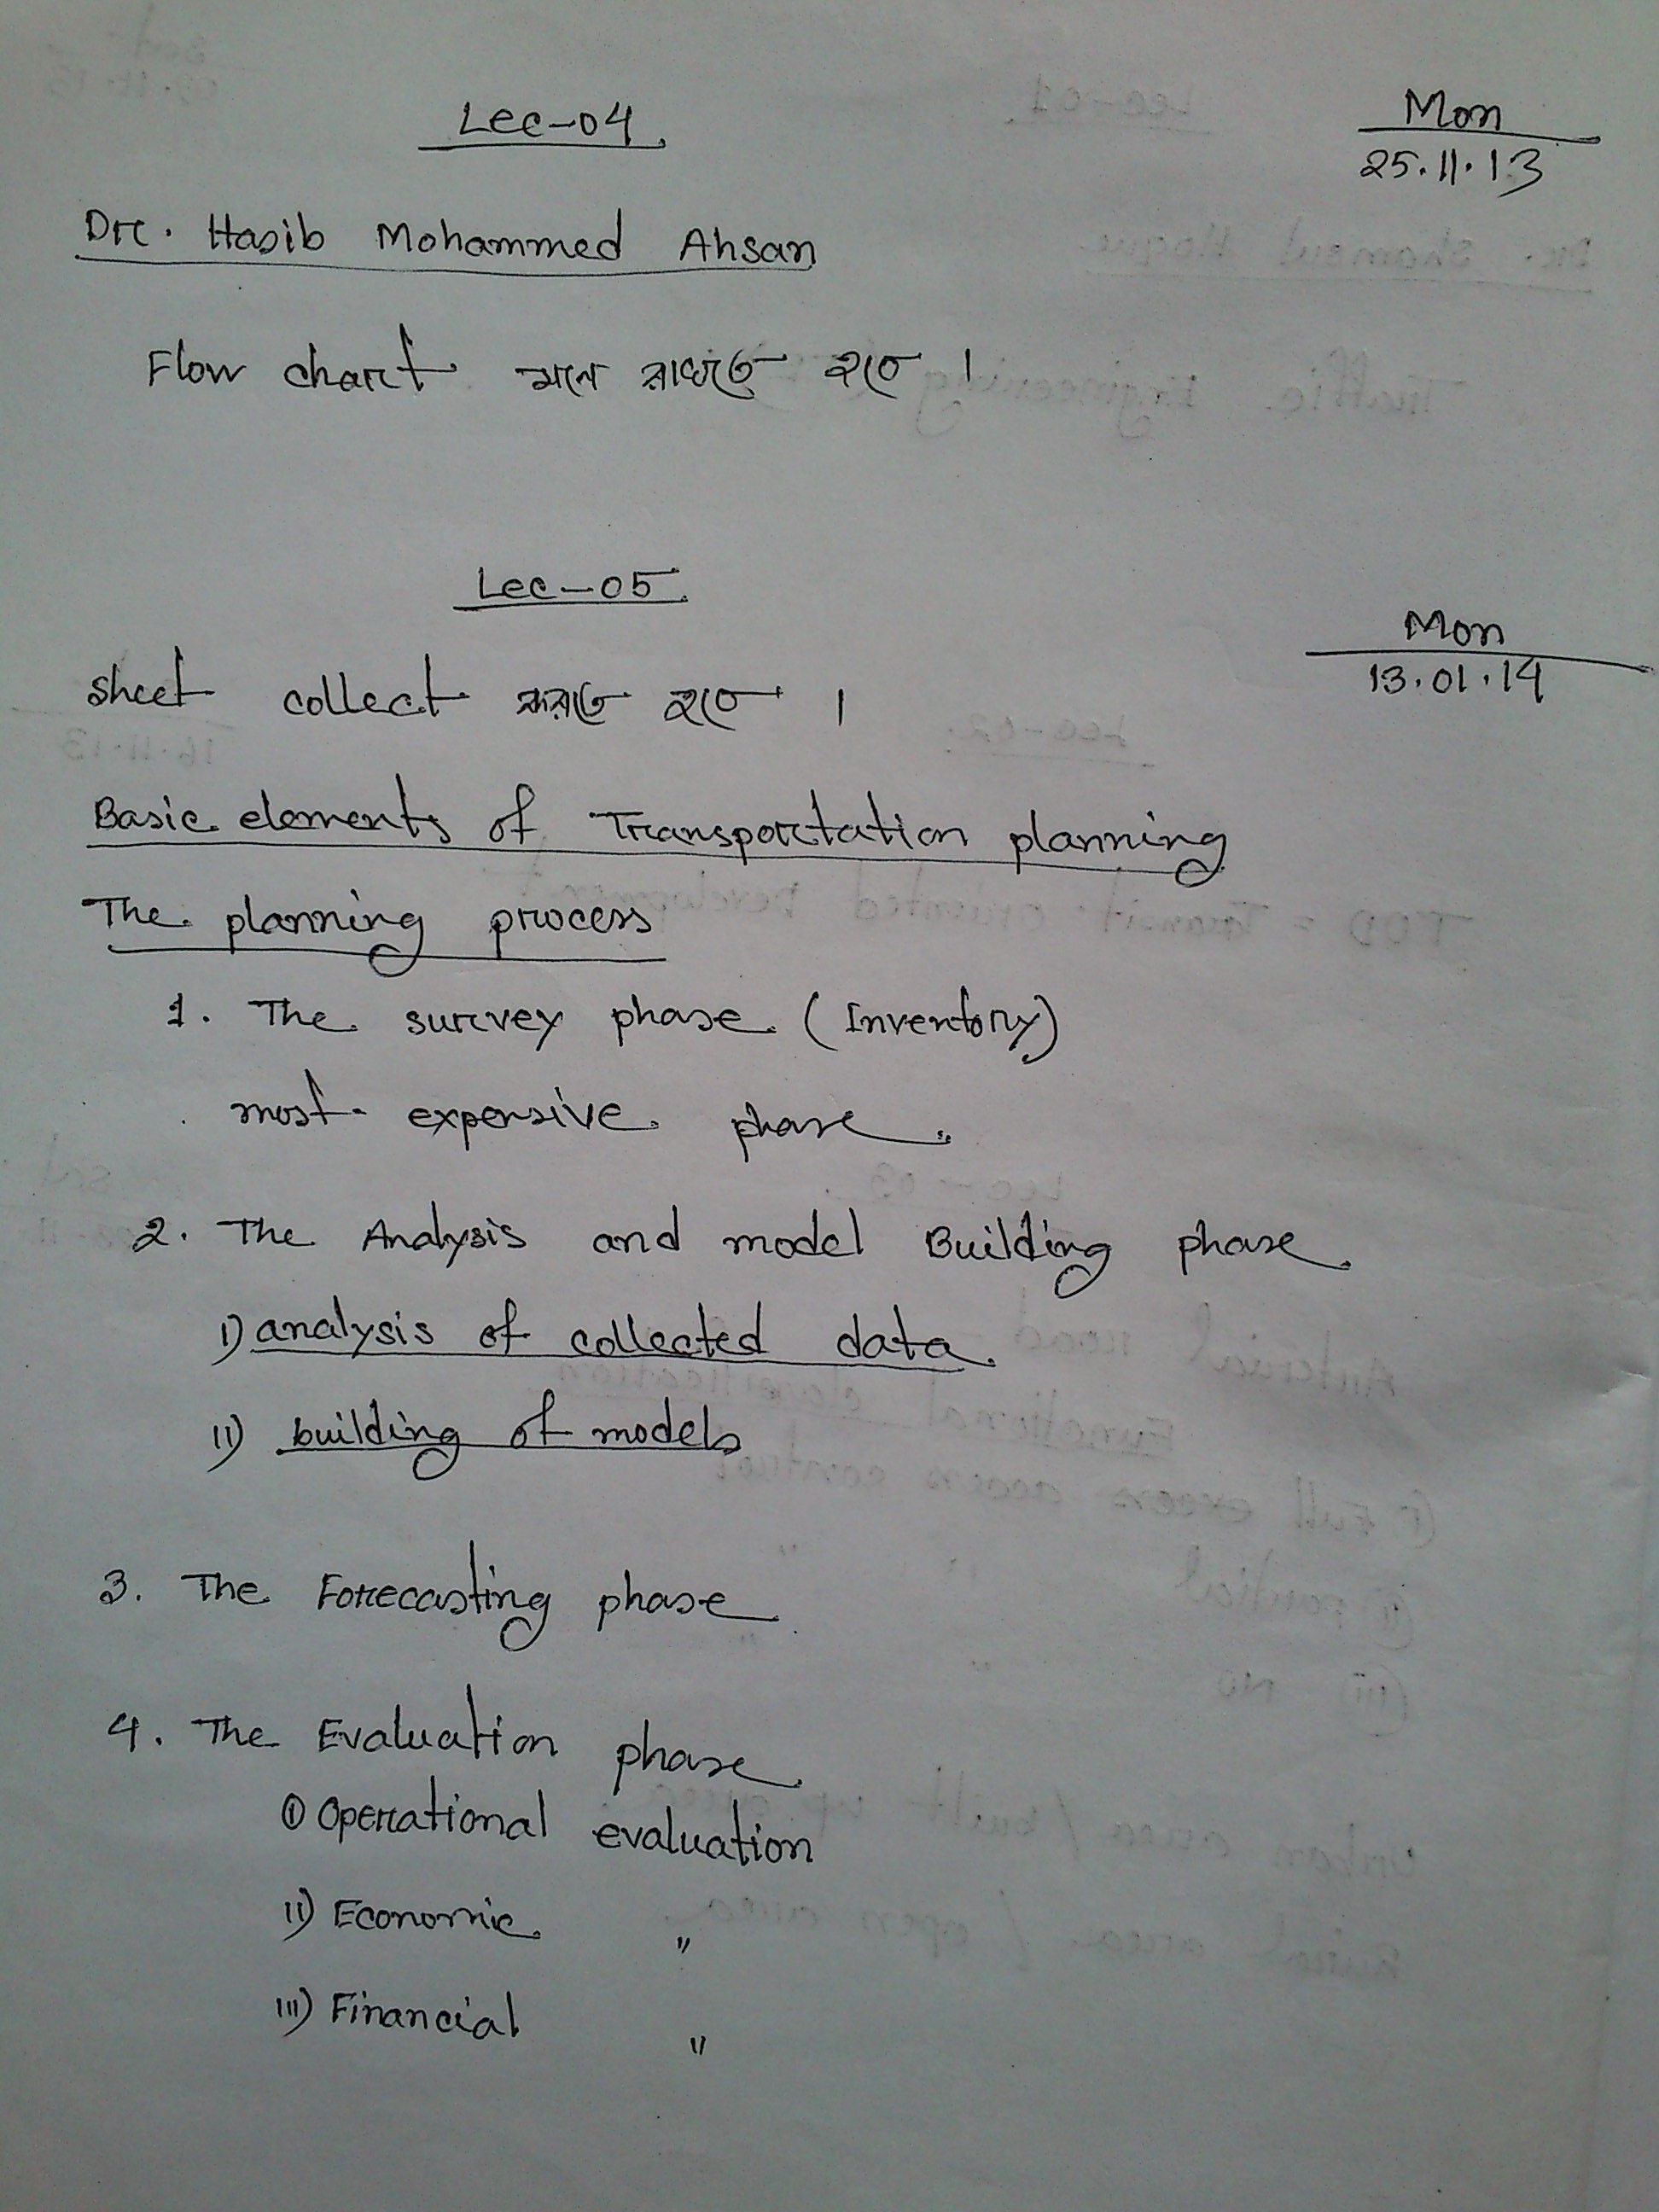 Lec-04
Mon
25.11.13
Dr. Hasib Mohammed Ahsan
Flow chart মনে রাখতে হবে।
Lec-05
Mon
13.01.14
sheet collect করতে হবে।
Basic elements of Transportation planning
The planning process
1. The survey phase (Inventory)
most expensive phase.
2. The Analysis and model Building phase.
i) analysis of collected data.
ii) building of models
3. The Forecasting phase
4. The Evaluation phase.
① Operational evaluation
ii) Economic "
iii) Financial "